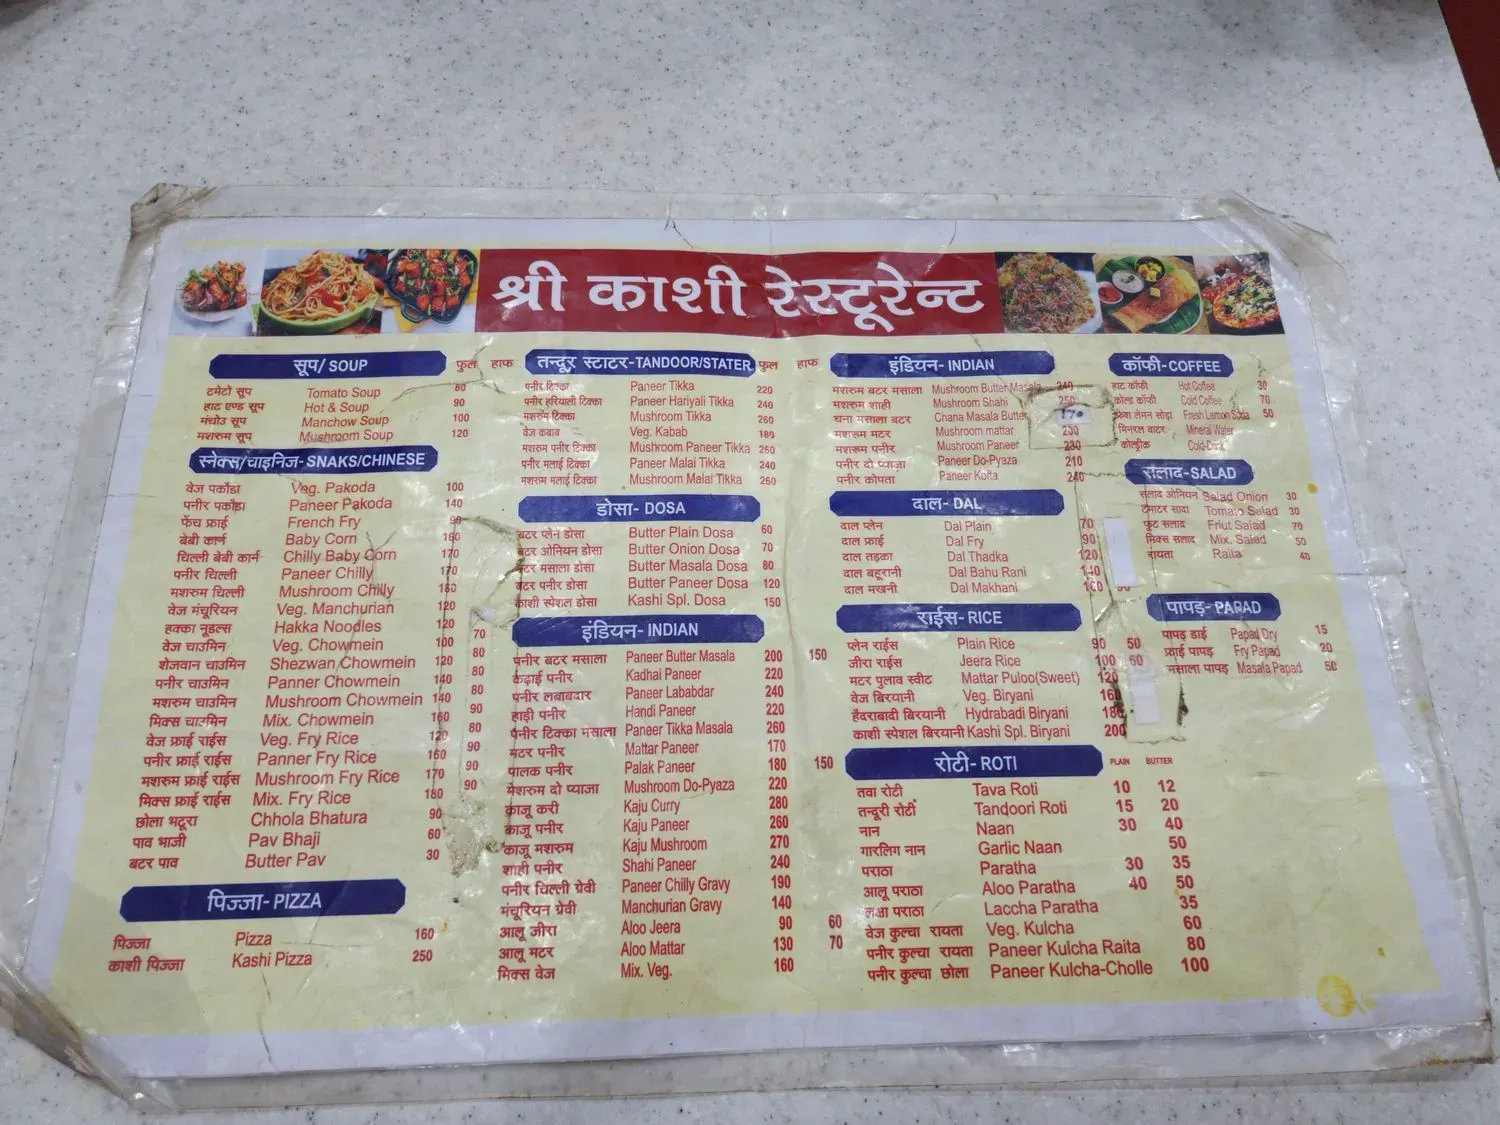 श्री काशी रेस्टूरेन्ट
सूप/ SOUP फुल हाफ
टमेटो सूप Tomato Soup 80
हाट एण्ड सूप Hot & Soup 90
मंचोउ सूप Manchow Soup 100
मशरुम सूप Mushroom Soup 120
स्नेक्स/चाइनिज- SNAKS/CHINESE
वेज पकौडा Veg. Pakoda 100
पनीर पकौड़ा Paneer Pakoda 140
फेंच फ्राई French Fry 90
बेबी कार्न Baby Corn 160
चिल्ली बेबी कार्न Chilly Baby Corn 170
पनीर चिल्ली Paneer Chilly 170
मशरुम चिल्ली Mushroom Chilly 180
वेज मंचूरियन Veg. Manchurian 120
हक्का नूडल्स Hakka Noodles 120 70
वेज चाउमिन Veg. Chowmein 100 80
शेजवान चाउमिन Shezwan Chowmein 120 80
पनीर चाउमिन Panner Chowmein 140 80
मशरुम चाउमिन Mushroom Chowmein 140 90
मिक्स चाउमिन Mix. Chowmein 160 80
वेज फ्राई राईस Veg. Fry Rice 120 90
पनीर फ्राई राईस Panner Fry Rice 160 90
मशरुम फ्राई राईस Mushroom Fry Rice 170 90
मिक्स फ्राई राईस Mix. Fry Rice 180
छोला भटूरा Chhola Bhatura 90
पाव भाजी Pav Bhaji 60
बटर पाव Butter Pav 30
पिज्जा- PIZZA
पिज्जा Pizza 160
काशी पिज्जा Kashi Pizza 250
तन्दूर स्टाटर-TANDOOR/STATER फुल हाफ
पनीर टिक्का Paneer Tikka 220
पनीर हरियाली टिक्का Paneer Hariyali Tikka 240
मशरुम टिक्का Mushroom Tikka 260
वेज कबाब Veg. Kabab 180
मशरुम पनीर टिक्का Mushroom Paneer Tikka 260
पनीर मलाई टिक्का Paneer Malai Tikka 240
मशरुम मलाई टिक्का Mushroom Malai Tikka 260
डोसा- DOSA
बटर प्लेन डोसा Butter Plain Dosa 60
बटर ओनियन डोसा Butter Onion Dosa 70
बटर मसाला डोसा Butter Masala Dosa 80
बटर पनीर डोसा Butter Paneer Dosa 120
काशी स्पेशल डोसा Kashi Spl. Dosa 150
इंडियन- INDIAN
पनीर बटर मसाला Paneer Butter Masala 200 150
कढ़ाई पनीर Kadhai Paneer 220
पनीर लबाबदार Paneer Lababdar 240
हाड़ी पनीर Handi Paneer 220
पनीर टिक्का मसाला Paneer Tikka Masala 260
मटर पनीर Mattar Paneer 170
पालक पनीर Palak Paneer 180 150
मशरुम दो प्याजा Mushroom Do-Pyaza 220
काजू करी Kaju Curry 280
काजू पनीर Kaju Paneer 260
काजू मशरुम Kaju Mushroom 270
शाही पनीर Shahi Paneer 240
पनीर चिल्ली ग्रेवी Paneer Chilly Gravy 190
मंचूरियन ग्रेवी Manchurian Gravy 140
आलू जीरा Aloo Jeera 90 60
आलू मटर Aloo Mattar 130 70
मिक्स वेज Mix. Veg. 160
इंडियन- INDIAN
मशरुम बटर मसाला Mushroom Butter Masala 240
मशरुम शाही Mushroom Shahi 250
चना मसाला बटर Chana Masala Butter 170
मशरूम मटर Mushroom mattar 230
मशरूम पनीर Mushroom Paneer 230
पनीर दो प्याज़ा Paneer Do-Pyaza 210
पनीर कोपता Paneer Kofta 240
दाल- DAL
दाल प्लेन Dal Plain 70
दाल फ्राई Dal Fry 90
दाल तड़का Dal Thadka 120
दाल बहूरानी Dal Bahu Rani 140
दाल मखनी Dal Makhani
राईस- RICE
प्लेन राईस Plain Rice 90 50
जीरा राईस Jeera Rice 100 60
मटर पुलाव स्वीट Mattar Puloo(Sweet) 120
वेज बिरयानी Veg. Biryani 160
हैदराबादी बिरयानी Hydrabadi Biryani 180
काशी स्पेशल बिरयानी Kashi Spl. Biryani 200
रोटी- ROTI PLAIN BUTTER
तवा रोटी Tava Roti 10 12
तन्दूरी रोटी Tandoori Roti 15 20
नान Naan 30 40
गारलिग नान Garlic Naan 50
पराठा Paratha 30 35
आलू पराठा Aloo Paratha 40 50
लक्षा पराठा Laccha Paratha 35
वेज कुल्चा रायता Veg. Kulcha 60
पनीर कुल्चा रायता Paneer Kulcha Raita 80
पनीर कुल्चा छोला Paneer Kulcha-Cholle 100
कॉफी-COFFEE
हाट कॉफी Hot Coffee 30
कोल्ड कॉफी Cold Coffee 70
फ्रेश लेमन सोडा Fresh Lemon Soda 50
मिनरल वाटर Mineral Water
कोल्ड्रीक Cold-Drink
सलाद-SALAD
सलाद ओनियन Salad Onion 30
टमाटर सादा Tomato Salad 30
फ्रूट सलाद Friut Salad 70
मिक्स सलाद Mix. Salad 50
रायता Raita 40
पापड़- PAPAD
पापड़ ड्राई Papad Dry 15
फ्राई पापड़ Fry Papad 20
मसाला पापड़ Masala Papad 50